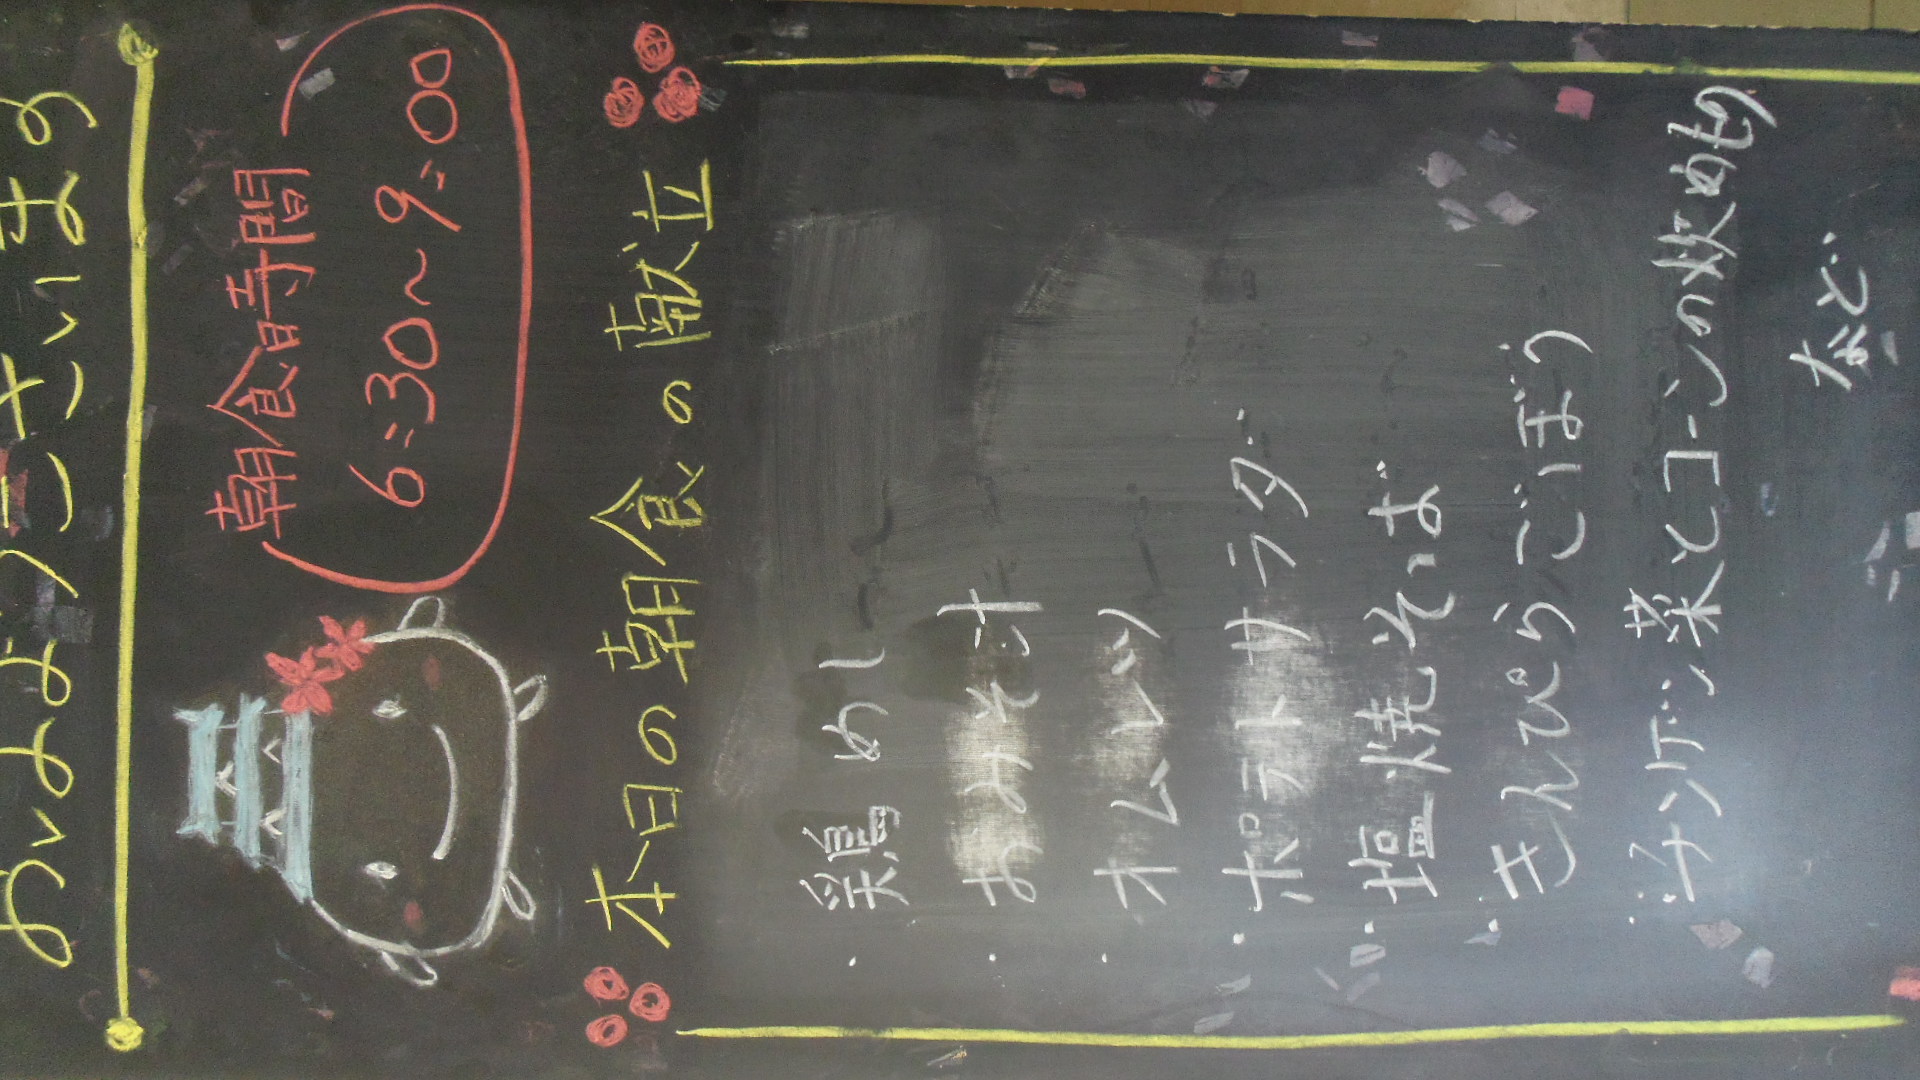 おはようございます
朝食時間
6:30～9:00
本日の朝食の献立
・鶏めし
・おみそ汁
・オムレツ
・ポテトサラダ
・塩焼そば
・きんぴらごぼう
・チンゲン菜とコーンの炊めもの
など